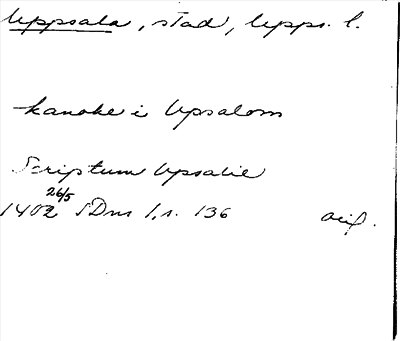 Uppsala, stad, Upps. l.
kanoke i Upsalom
Scriptum Upsalie
1402 26/5 SDns 1, s. 136 orig.